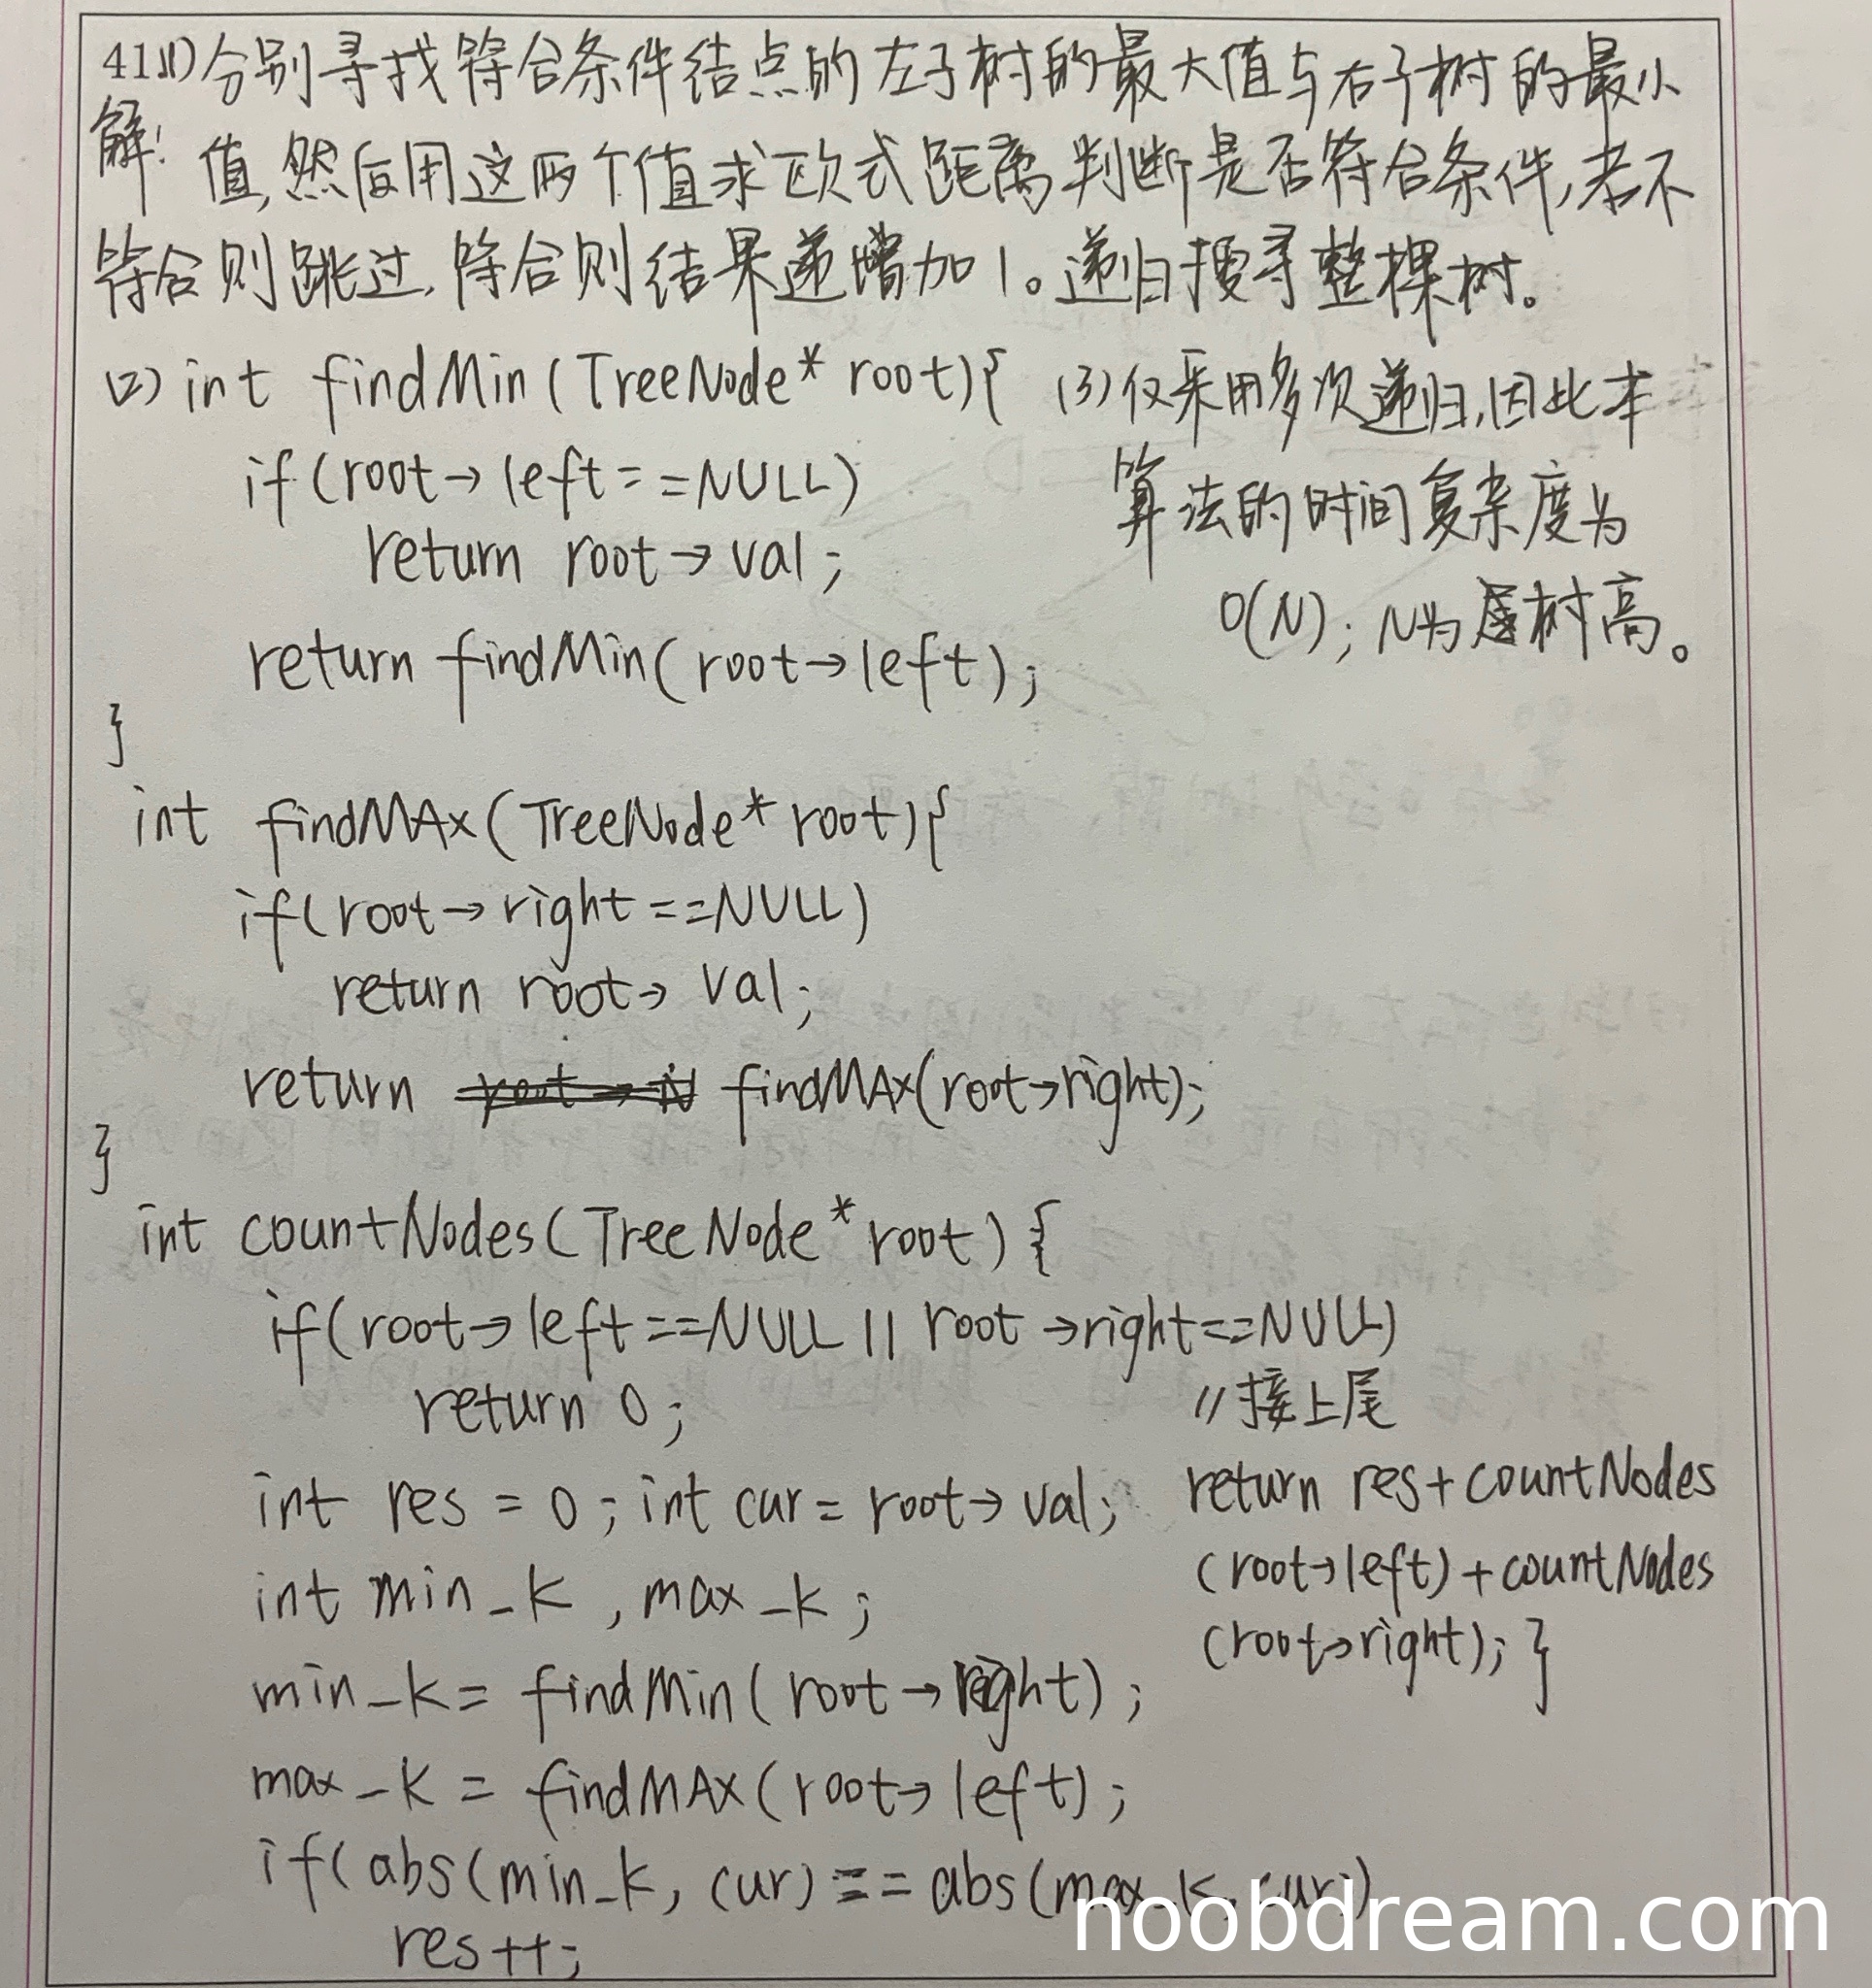 41.(1)分别寻找符合条件结点的左子树的最大值与右子树的最小
解: 值,然后用这两个值求欧式距离判断是否符合条件,若不
符合则跳过,符合则结果递增加1。递归搜寻整棵树。
(2) int findMin(TreeNode* root){
if(root→left==NULL)
return root→val;
return findMin(root→left);
}
int findMAx(TreeNode* root){
if(root→right==NULL)
return root→val;
return findMAx(root→right);
}
int countNodes(TreeNode* root){
if(root→left==NULL || root→right==NULL)
return 0;
int res = 0; int cur = root→val;
int min_k, max_k;
min_k = findMin(root→right);
max_k = findMAx(root→left);
if(abs(min_k, cur) == abs(max_k, cur))
res++;
//接上尾
return res+countNodes
(root→left)+countNodes
(root→right); }
(3)仅采用多次递归,因此本
算法的时间复杂度为
O(N); N为树高。
noobdream.com